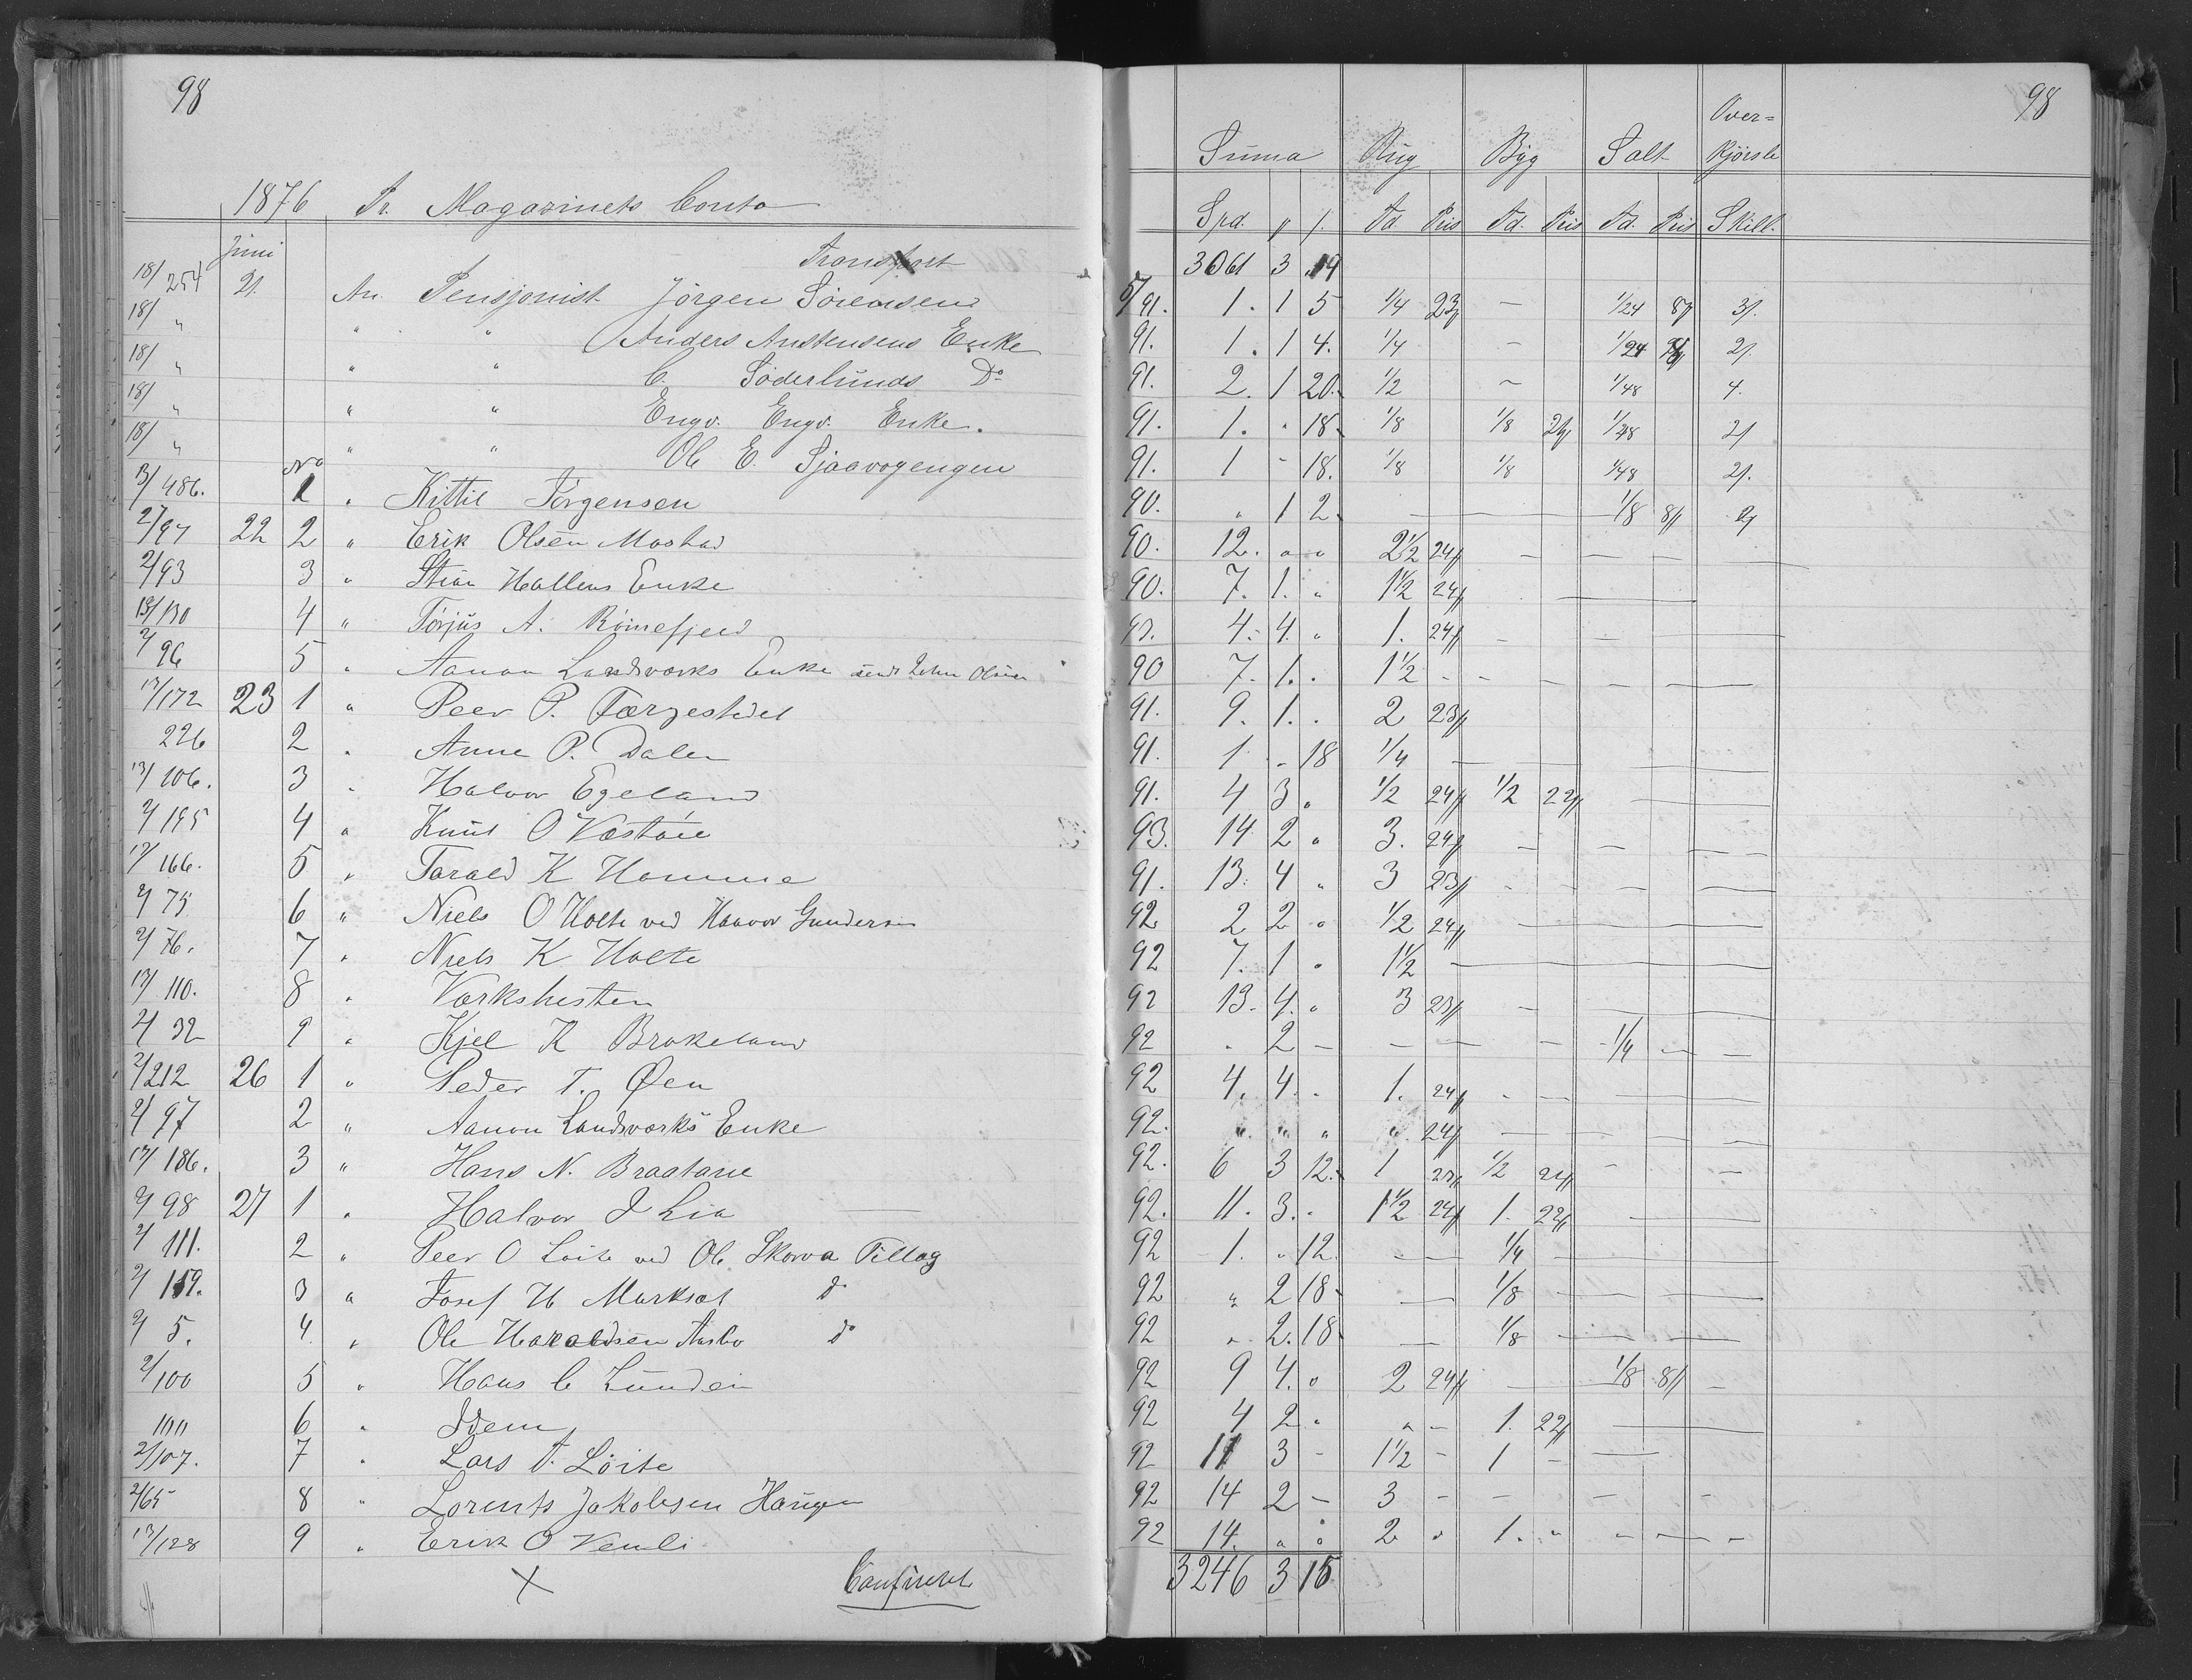 98
1876 Pr. Magazinets Conto
Juni
Transport
18/254 21. An. Pensjonist Jörgen Sörensens
18/ " " " Anders Anstensens Enke
18/ " " " C. Söderlunds Do
18/ " " " Engv. Engv. Enke.
18/ " " " Ole E. Sjaavogengen
No
13/486. 1 " Kittil Jörgensen
2/97 22 2 " Erik Olsen Mostad
2/93 3 " Stian Hallens Enke
13/130 4 " Torjus A. Rönnefjeld
2/96 5 " Aanon Landsværks Enke John Olsen
17/172 23 1 " Peer P. Færgestedet
226 2 " Anne P. Dalen
17/106. 3 " Halvor Egeland
2/195 4 " Knut O Væstöie
17/166. 5 " Tarald K Homme
2/75 6 " Niels O Holte ved Haavor Gundersen
2/76. 7 " Niels K Holte
17/110. 8 " Værkshesten
2/32 9 " Kjel K Brokeland
2/212 26 1 " Peder T. Øen
2/97 2 " Aanon Landsværks Enke
17/186. 3 " Hans N. Braatane
2/98 27 1 " Halvor J Lia
2/111. 2 " Peer O Löite ved Ole Skorva Tillæg
2/119. 3 " Josef H Marksæt do
2/5. 4. " Ole Haraldsen Aasbo do
2/100 5 " Hans C Lunden
100 6 " Idem
2/107. 7 " Lars T. Löite
2/65 8 " Lorents Jakobsen Haugen
17/128 9 " Erik O Vemli
Confereret
98
Suma Rug Byg Salt Over=
kjörsle
Spd. Td. Pris Td. Pris Td. Pris Skill.
3061 3 19
91. 1. 1 5 1/4 23 — 1/24 8 3
91. 1. 1 4. 1/4 — 1/24 2
91. 2. 1 20. 1/2 ~ 1/48 4.
91. 1. " 18. 1/8 1/8 1/48 2
91. 1 - 18. 1/8 1/8 1/48 2
90. " 1 2. — 1/8 8 2
90. 12. " " 2 1/2 24 — — —
90. 7. 1. " 1 1/2 24 —
4. 4. " 1. 24 - — —
90 7. 1. . 1 1/2 - - - - -
91. 9. 1. . 2 23
91. 1 " 18 1/4 —
91. 4 3 " 1/2 24 1/2 22 —
93. 14 2 " 3. 24 - — —
91. 13. 4 " 3 23 - - — —
92 2 2 " 1/2 24 —
92 7. 1 " 1 1/2 —
92 13. 4. " 3 23 -
92 " 2 — — — — 1/4 — —
92 4. 4. . 1. 24 - — —
92. " " " " 24 —
92. 6 3 12. 1 23 1/2 — —
92. 11. 3. . 1 1/2 24 1. 22 —
92 1. " 12. — 1/4 —
92 " 2 18 — 1/8 —
92 " 2. 18 — 1/8 —
92 9 4. " 2 24 — 1/8 8 —
92 4 2 " " — 1. 22 —
92 11 3 - 1 1/2 - 1 - —
92 14 2 — 3 - - — - —
92 14. " " 2 " 1. " - — -
3246 3 15